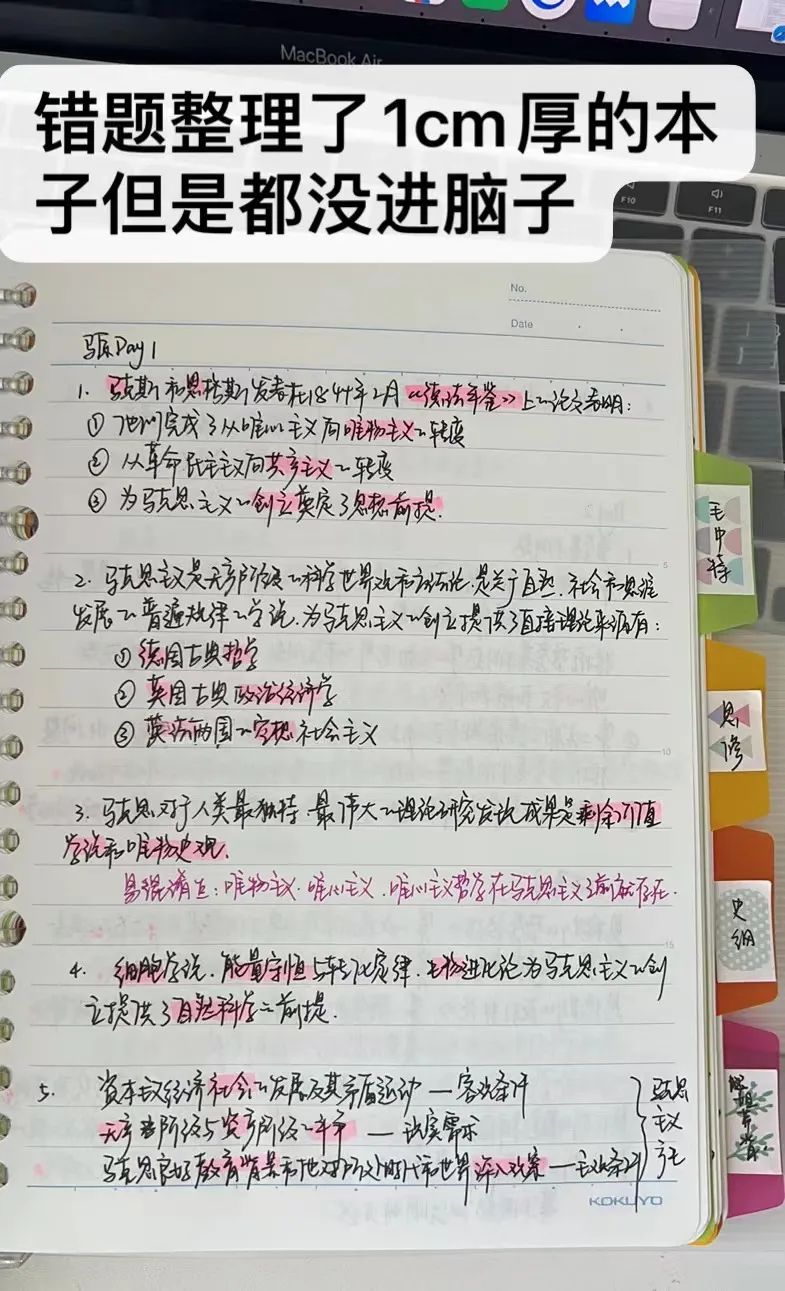 MacBook Air
错题整理了1cm厚的本
子但是都没进脑子
F10
F11
No.
Date
马原Day1
1. 马克斯和恩格斯发表在1844年2月《德法年鉴》上的论文表明：
① 他们完成了从唯心主义向唯物主义的转变
② 从革命民主主义向共产主义的转变
③ 为马克思主义的创立奠定了思想前提.
2. 马克思主义是无产阶级的科学世界观和方法论,是关于自然、社会和思维
发展的普遍规律的学说,为马克思主义的创立提供了直接理论来源有：
① 德国古典哲学
② 英国古典政治经济学
③ 英法两国的空想社会主义
3. 马克思对于人类最独特、最伟大的理论研究发现成果是剩余价值
学说和唯物史观.
易混淆点：唯物主义、唯心主义、唯心主义哲学在马克思主义之前就存在.
4. 细胞学说、能量守恒与转化定律、生物进化论为马克思主义的创
立提供了自然科学的前提.
5. 资本主义经济社会的发展及其矛盾运动 — 客观条件
无产阶级与资产阶级的斗争 — 现实需求
马克思良好教育背景和他对所处时代和世界深入观察 — 主观条件
马克思
主义
产生
KOKUYO
毛中特
思修
史纲
5
10
15